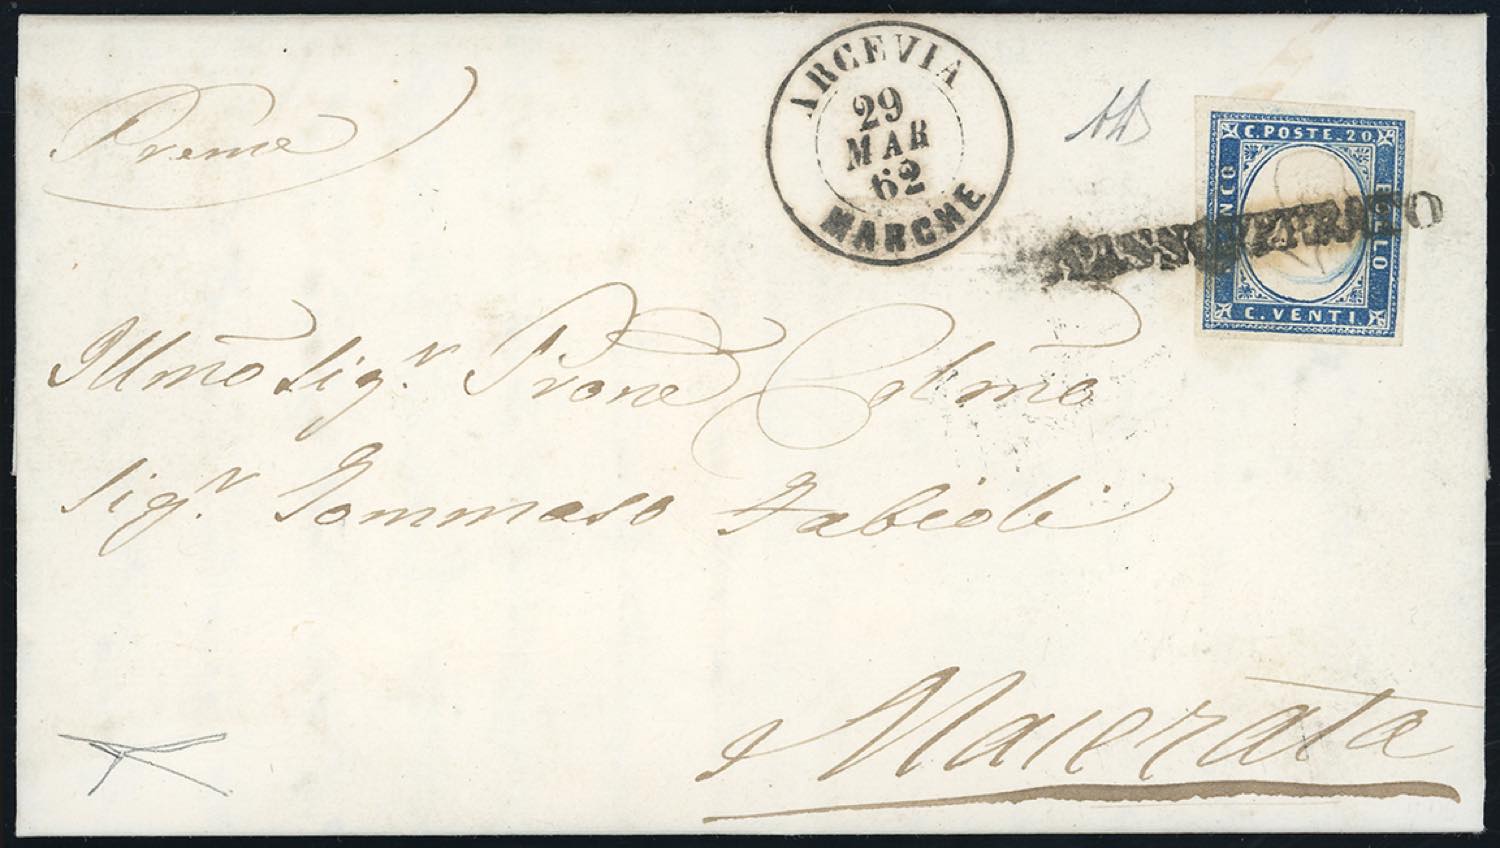 Preme
ARCEVIA
29
MAR
62
MARCHE
C. POSTE. 20
FRANCO
BOLLO
C. VENTI.
Illmo Sigr. Prone Colmo
Sigr. Tommaso Fabioli
Macerata